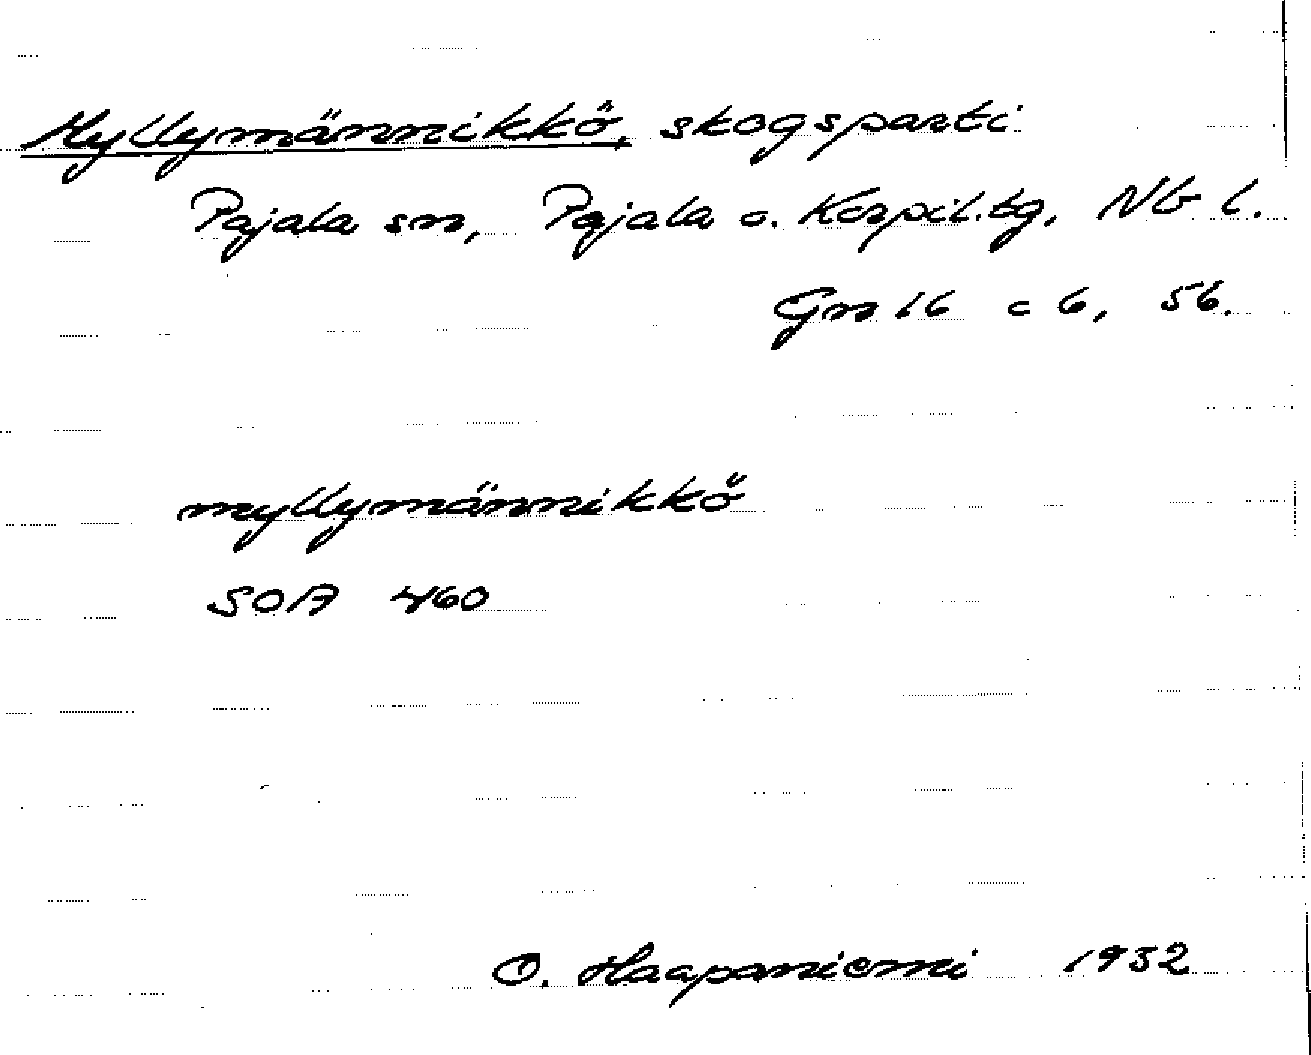 Myllymännikkö, skogsparti
Pajala sn, Pajala o. Korpil.tg, Nb l.
Gn 16 c 6, 56.
myllymännikkö
SOA 460
O. Haapaniemi 1932